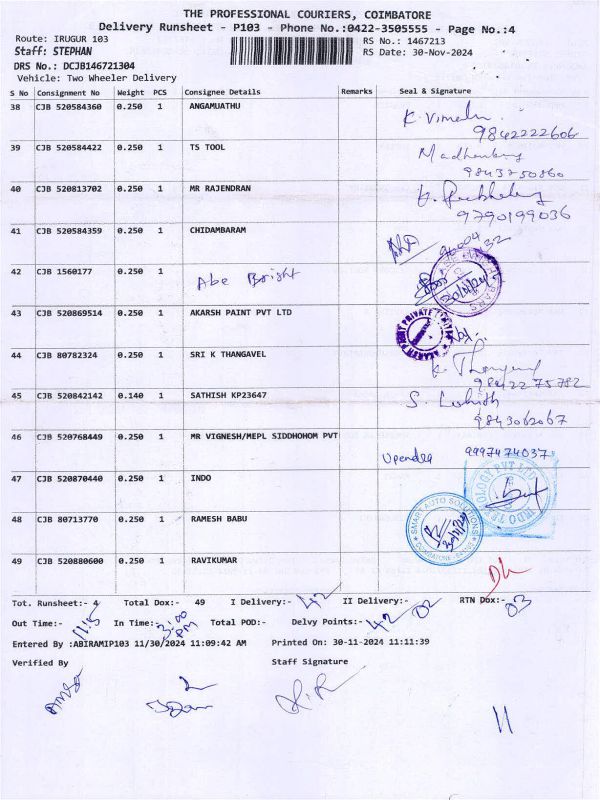 THE PROFESSIONAL COURIERS, COIMBATORE
Delivery Runsheet - P103 - Phone No.:0422-3505555 - Page No.:4
Route: IRUGUR 103
RS No.: 1467213
Staff: STEPHAN
RS Date: 30-Nov-2024
DRS No.: DCJB146721304
Vehicle: Two Wheeler Delivery
S No Consignment No Weight PCS Consignee Details Remarks Seal & Signature
38 CJB 520584360 0.250 1 ANGAMUATHU
K. Vimala
9842222606
39 CJB 520584422 0.250 1 TS TOOL
9843750860
40 CJB 520813702 0.250 1 MR RAJENDRAN
9790199036
41 CJB 520584359 0.250 1 CHIDAMBARAM
42 CJB 1560177 0.250 1 Abe Bright
43 CJB 520869514 0.250 1 AKARSH PAINT PVT LTD
44 CJB 80782324 0.250 1 SRI K THANGAVEL
9842275782
45 CJB 520842142 0.140 1 SATHISH KP23647
9843062067
46 CJB 520768449 0.250 1 MR VIGNESH/MEPL SIDDHOHOM PVT
Upendra 9997474037
47 CJB 520870440 0.250 1 INDO
48 CJB 80713770 0.250 1 RAMESH BABU
SMART AUTO SOLUTIONS
49 CJB 520880600 0.250 1 RAVIKUMAR
Tot. Runsheet:- 4 Total Dox:- 49 I Delivery:- 42 II Delivery:- 02 RTN Dox:- 03
Out Time:- 11:15 In Time:- 3:00 PM Total POD:- Delvy Points:- 42
Entered By :ABIRAMIP103 11/30/2024 11:09:42 AM Printed On: 30-11-2024 11:11:39
Verified By Staff Signature